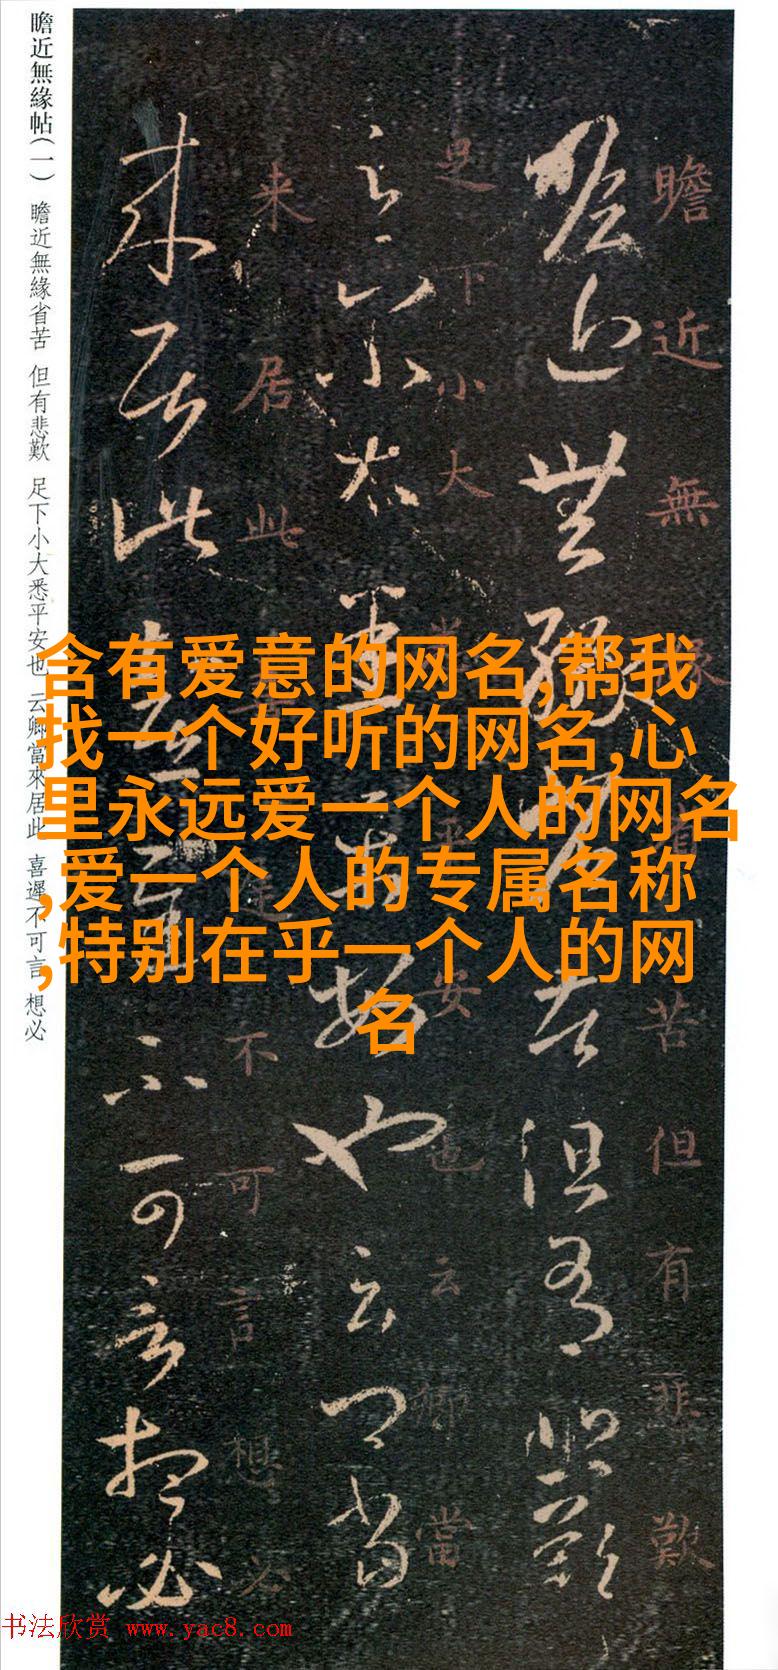 瞻近無緣帖（一） 瞻近無緣省苦 但有悲歎 足下小大悉平安也 云卿當來居此 喜遲不可言 想必
瞻近無緣省苦但有悲歎
瞻近無緣苦但有悲歎
足下小大悉平安也云卿當
足下小大安也云卿當
來居此喜遲不可言想必
来居此喜遲不可言想必
含有爱意的网名,帮我
找一个好听的网名,心
里永远爱一个人的网名
,爱一个人的专属名称
,特别在乎一个人的网
名
书法欣赏 www.yac8.com